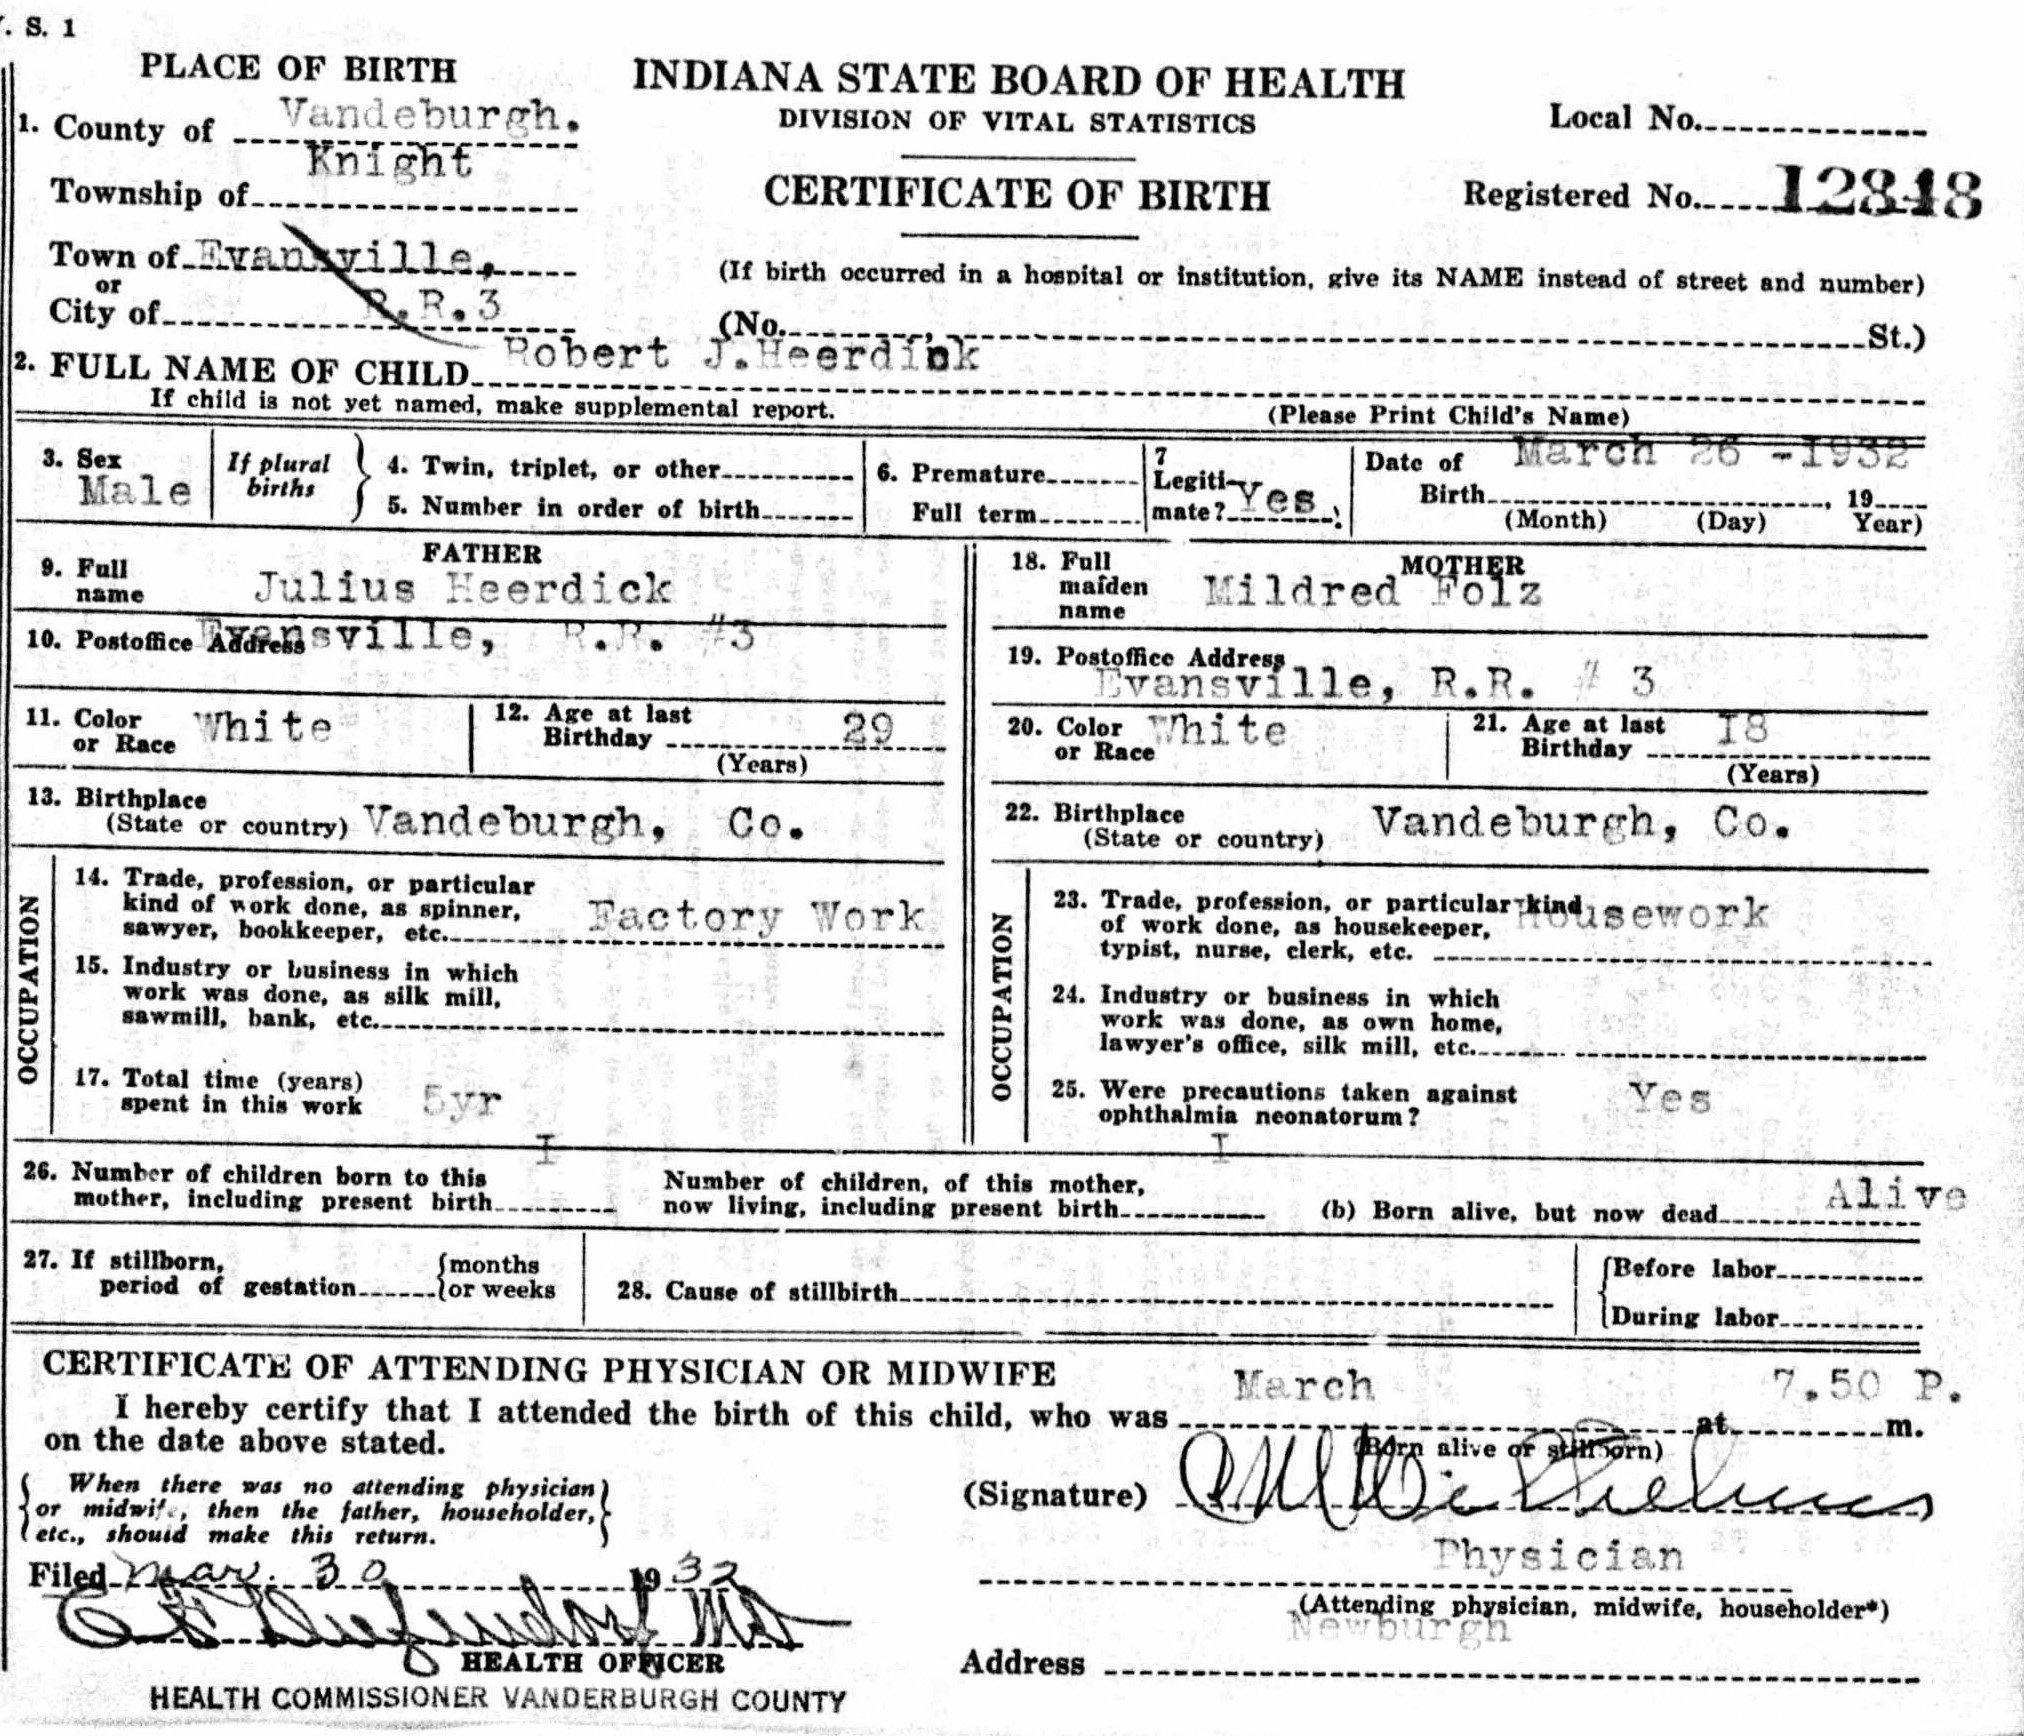 . S. 1
PLACE OF BIRTH
1. County of Vandeburgh.
Township of Knight
Town of Evansville,
or
City of R.R.3
INDIANA STATE BOARD OF HEALTH
DIVISION OF VITAL STATISTICS
CERTIFICATE OF BIRTH
Local No.
Registered No. 12848
(If birth occurred in a hospital or institution, give its NAME instead of street and number)
(No. , St.)
2. FULL NAME OF CHILD Robert J.Heerdick
If child is not yet named, make supplemental report.
(Please Print Child's Name)
3. Sex Male
If plural births
4. Twin, triplet, or other
5. Number in order of birth
6. Premature
Full term
7 Legiti-
mate? Yes
Date of March 26 -1932
Birth , 19
(Month) (Day) Year)
FATHER
9. Full
name Julius Heerdick
10. Postoffice Address Evansville, R.R. #3
11. Color
or Race White
12. Age at last
Birthday 29
(Years)
13. Birthplace
(State or country) Vandeburgh, Co.
OCCUPATION
14. Trade, profession, or particular
kind of work done, as spinner,
sawyer, bookkeeper, etc. Factory Work
15. Industry or business in which
work was done, as silk mill,
sawmill, bank, etc.
17. Total time (years)
spent in this work 5yr
MOTHER
18. Full
maiden
name Mildred Folz
19. Postoffice Address
Evansville, R.R. # 3
20. Color
or Race White
21. Age at last
Birthday I8
(Years)
22. Birthplace
(State or country) Vandeburgh, Co.
OCCUPATION
23. Trade, profession, or particular kind
of work done, as housekeeper,
typist, nurse, clerk, etc. Housework
24. Industry or business in which
work was done, as own home,
lawyer's office, silk mill, etc.
25. Were precautions taken against
ophthalmia neonatorum? Yes
26. Number of children born to this
mother, including present birth I
Number of children, of this mother,
now living, including present birth I
(b) Born alive, but now dead Alive
27. If stillborn,
period of gestation {months
or weeks
28. Cause of stillbirth
{Before labor
During labor
CERTIFICATE OF ATTENDING PHYSICIAN OR MIDWIFE
I hereby certify that I attended the birth of this child, who was March at 7.50 P. m.
on the date above stated.
(Born alive or stillborn)
{When there was no attending physician
or midwife, then the father, householder,
etc., should make this return.}
(Signature)
Physician
(Attending physician, midwife, householder*)
Newburgh
Address
Filed Mar. 30 1932
HEALTH OFFICER
HEALTH COMMISSIONER VANDERBURGH COUNTY